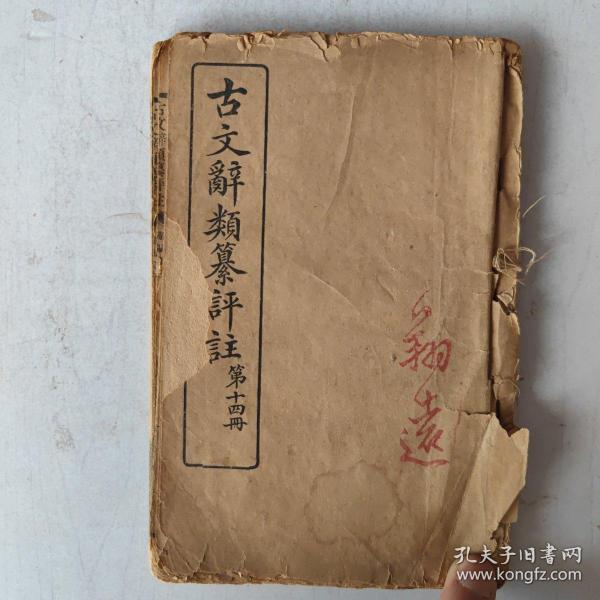 古文辭類纂評註
第十四冊
翔遠
孔夫子旧书网
www.kongfz.com